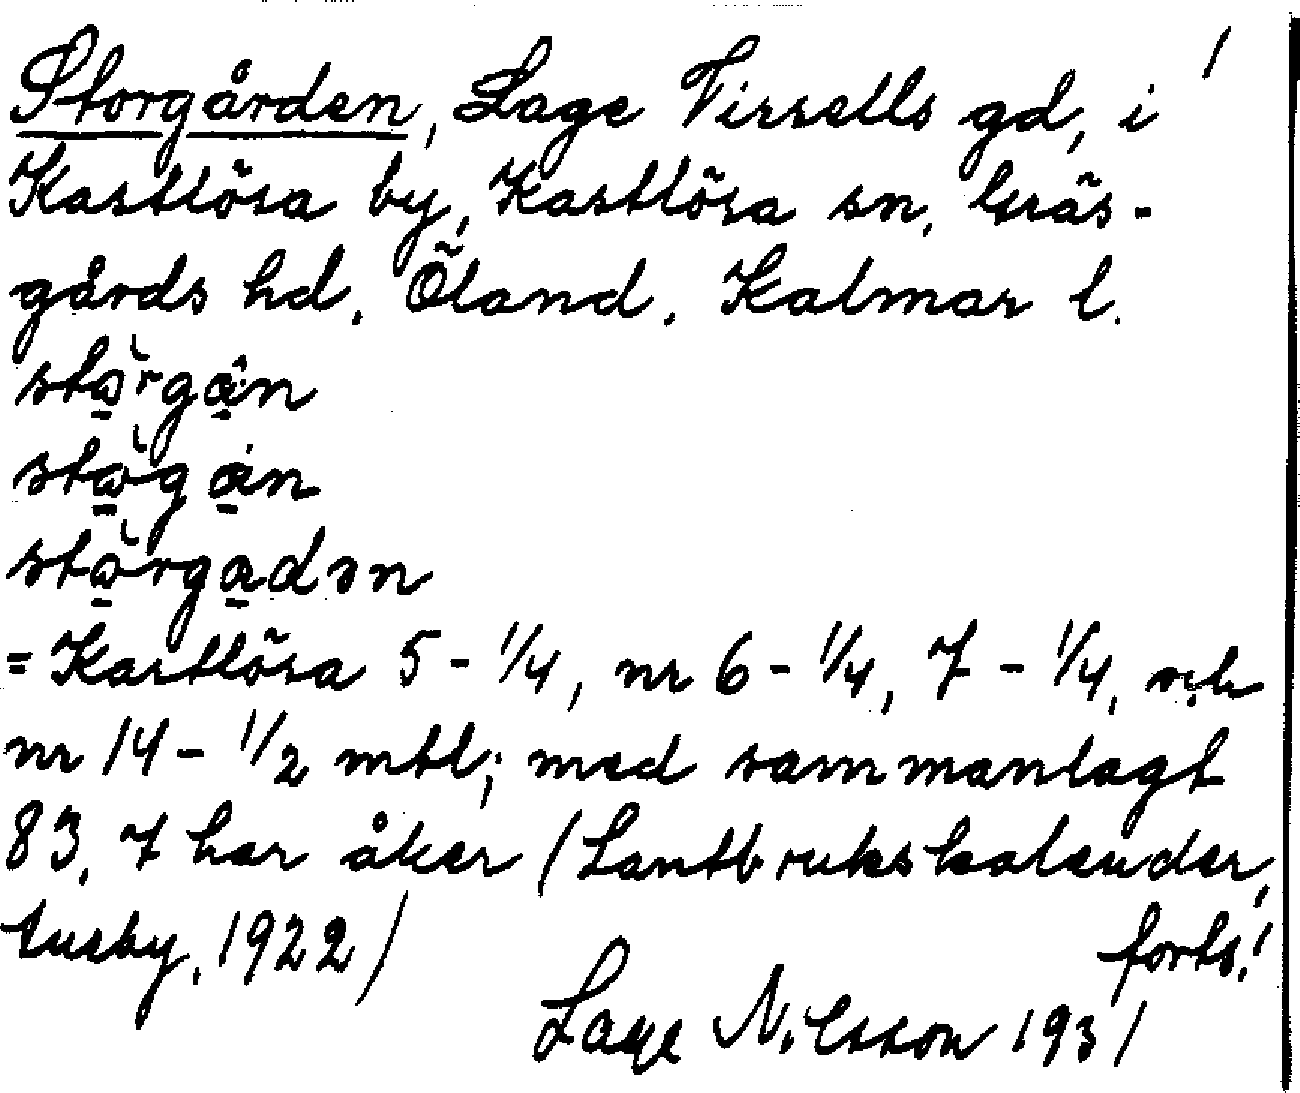 Storgården, Lage Tissells gd, i !
Kastlösa by, Kastlösa sn, Gräs-
gårds hd. Öland. Kalmar l.
= Kastlösa 5 - 1/4, nr 6 - 1/4, 7 - 1/4, och
nr 14 - 1/2 mtl; med sammanlagt
83,7 har åker (Lantbrukskalender,
1922) forts.!
Lage Nilsson 1931